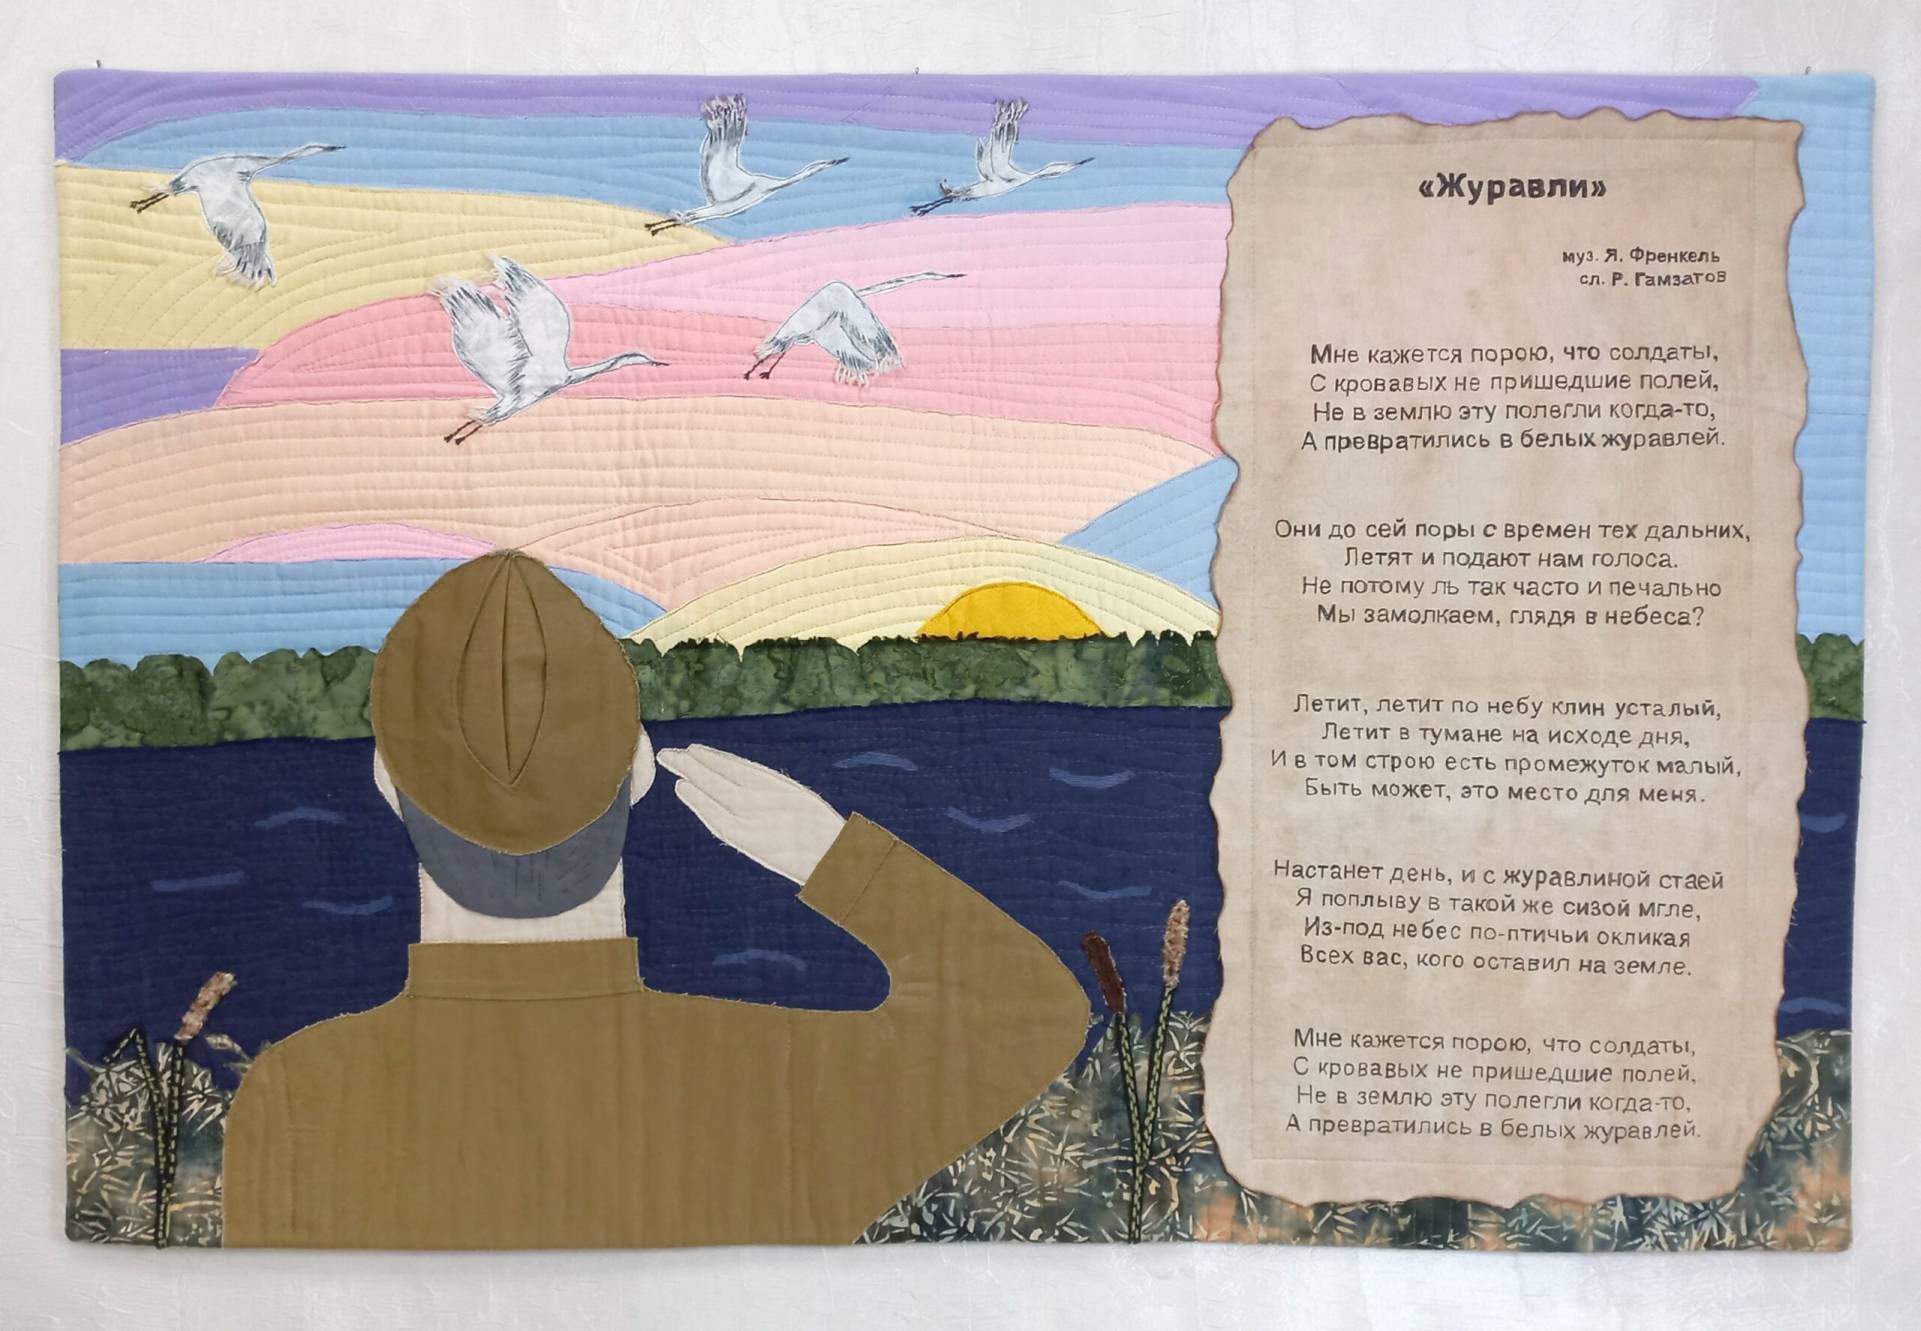 «Журавли»
муз. Я. Френкель
сл. Р. Гамзатов
Мне кажется порою, что солдаты,
С кровавых не пришедшие полей,
Не в землю эту полегли когда-то,
А превратились в белых журавлей.
Они до сей поры с времен тех дальних,
Летят и подают нам голоса.
Не потому ль так часто и печально
Мы замолкаем, глядя в небеса?
Летит, летит по небу клин усталый,
Летит в тумане на исходе дня,
И в том строю есть промежуток малый,
Быть может, это место для меня.
Настанет день, и с журавлиной стаей
Я поплыву в такой же сизой мгле,
Из-под небес по-птичьи окликая
Всех вас, кого оставил на земле.
Мне кажется порою, что солдаты,
С кровавых не пришедшие полей,
Не в землю эту полегли когда-то,
А превратились в белых журавлей.